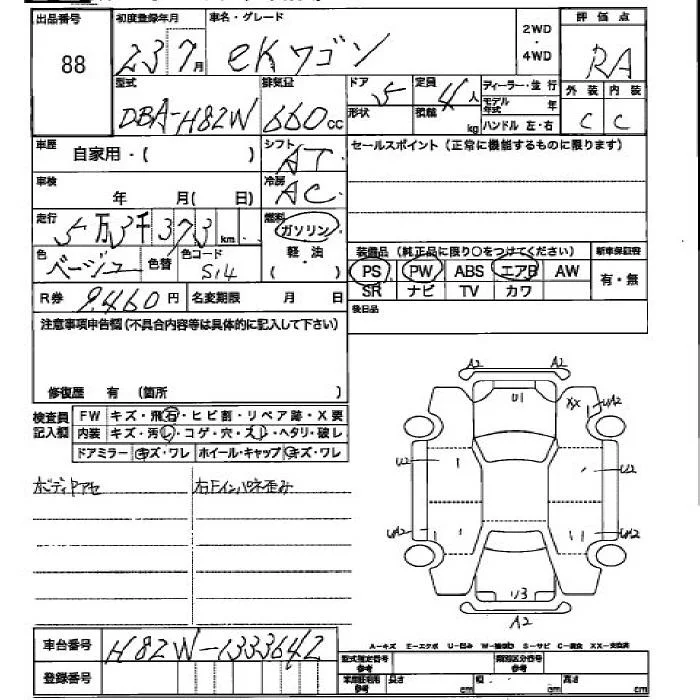 出品番号 初度登録年月 車名・グレード 2WD・4WD 評価点
88 23 7月 eKワゴン RA
型式 排気量 ドア 定員 ディーラー・並行 外装 内装
DBA-H82W 660cc 5 4人 モデル年式 年 C C
形状 積載 kg ハンドル 左・右
車歴 自家用・( ) シフト AT セールスポイント（正常に機能するものに限ります）
車検 年 月( 日) 冷房 AC
走行 5万3千373km 燃料 ガソリン
軽・油
( )
色 ベージュ 色替 色コード S14
装備品（純正品に限り○をつけてください） 新車保証書
PS PW ABS エアB AW 有・無
SR ナビ TV カワ
R券 9,460円 名変期限 月 日 後日品
注意事項申告欄（不具合内容等は具体的に記入して下さい）
修復歴 有 (箇所 )
検査員記入欄 FW キズ・飛石・ヒビ割・リペア跡・X要
内装 キズ・汚レ・コゲ・穴・スレ・ヘタリ・破レ
ドアミラー キズ・ワレ ホイール・キャップ キズ・ワレ
ボディワアセ 右Fインパネ歪み
A2 A2
U1 XX UA2
U2 U2
UA2 UA2
U3
A2
車台番号 H82W-1333642
登録番号
A-キズ E-エクボ U-凹み S-サビ C-腐食 XX-交換済
型式指定番号 参考 類別区分番号 参考
参考 長さ cm 幅 cm 高さ cm